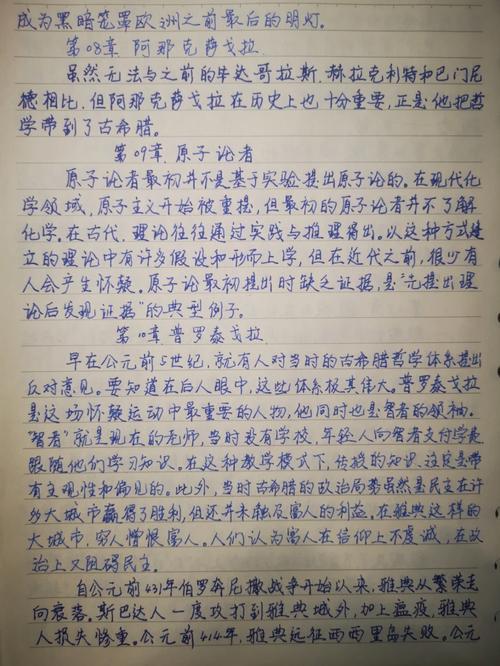 成为黑暗笼罩欧洲之前最后的明灯。
第08章 阿那克萨戈拉
虽然无法与之前的毕达哥拉斯、赫拉克利特和巴门尼
德相比,但阿那克萨戈拉在历史上也十分重要,正是他把哲
学带到了古希腊。
第09章 原子论者
原子论者最初并不是基于实验提出原子论的。在现代化
学领域,原子主义开始被重提,但最初的原子论者并不了解
化学。在古代,理论往往通过实践与推理得出。以这种方式建
立的理论中有许多假设和形而上学,但在近代之前,很少有
人会产生怀疑。原子论最初提出时缺乏证据,是“先提出理
论后发现证据”的典型例子。
第10章 普罗泰戈拉
早在公元前5世纪,就有人对当时的古希腊哲学体系提出
反对意见。要知道在后人眼中,这些体系极其伟大。普罗泰戈拉
是这场怀疑运动中最重要的人物,他同时也是智者的领袖。
“智者”就是现在的老师,当时没有学校,年轻人向智者支付学费
跟随他们学习知识。在这种教学模式下,传授的知识注定是带
有主观性和偏见的。此外,当时古希腊的政治局势虽然是民主在许
多大城市赢得了胜利,但还并未触及富人的利益。在雅典这样的
大城市,穷人憎恨富人。人们认为富人在信仰上不虔诚,在政
治上又阻碍民主。
自公元前431年伯罗奔尼撒战争开始以来,雅典从繁荣走
向衰落。斯巴达人一度攻打到雅典城外,加上瘟疫,雅典
人损失惨重。公元前414年,雅典远征西西里岛失败。公元